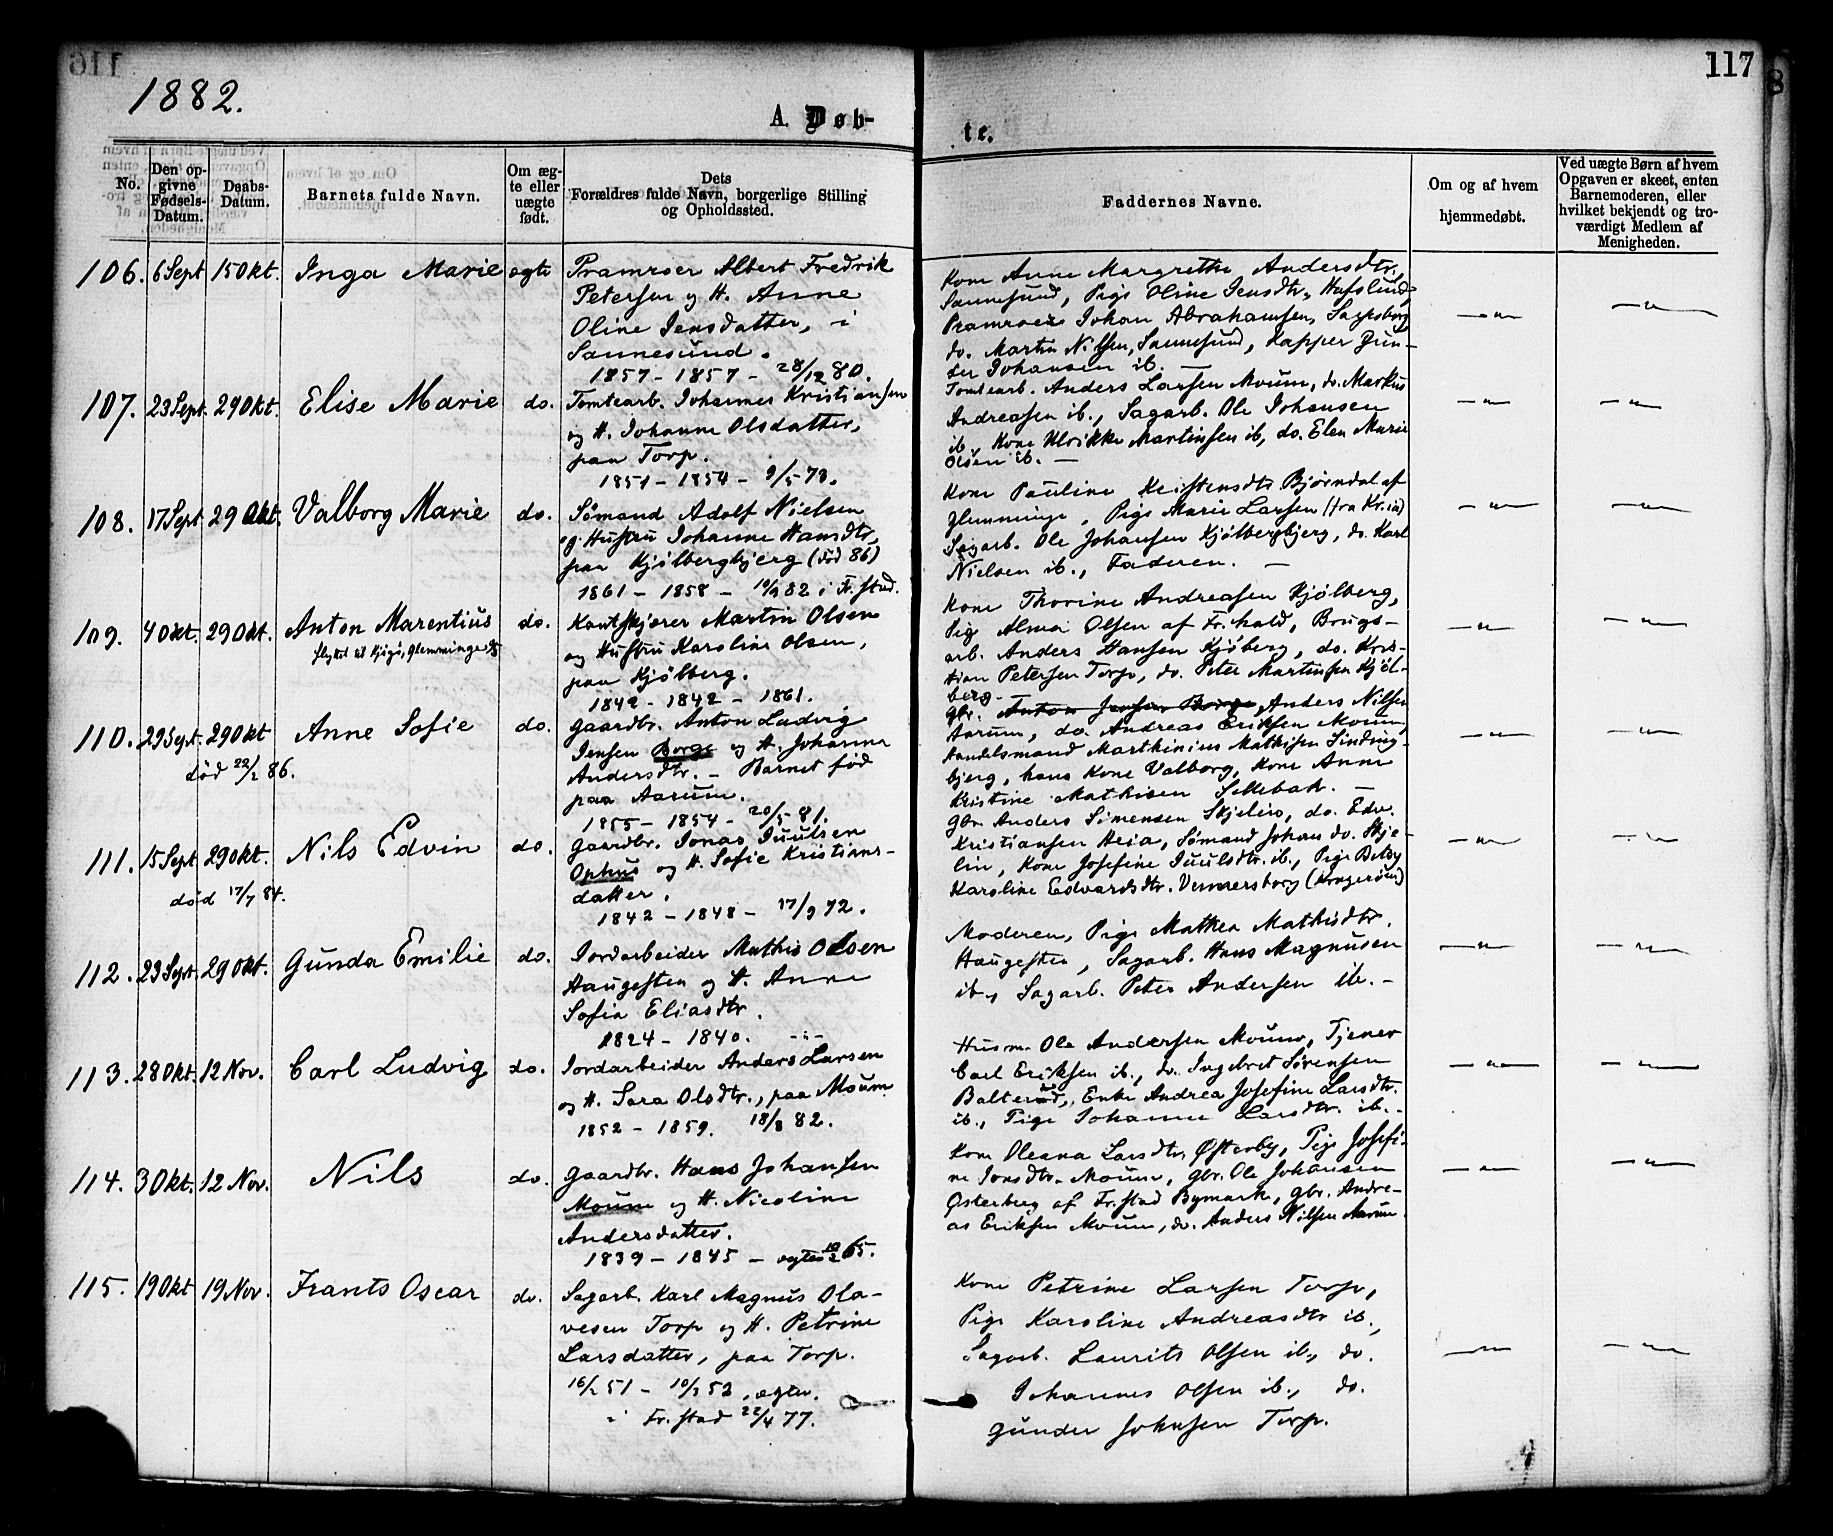 117
1882.
A. Døb-
te.
No.
Den op-
givne
Fødsels-
Datum.
Daabs-
Datum.
Barnets fulde Navn.
Om æg-
te eller
uægte
født.
Dets
Forældres fulde Navn, borgerlige Stilling
og Opholdssted.
Faddernes Navne.
Om og af hvem
hjemmedøbt.
Ved uægte Børn af hvem
Opgaven er skeet, enten
Barnemoderen, eller
hvilket bekjendt og tro-
værdigt Medlem af
Menigheden.
106. 6 Sept 15 Okt. Inga Marie ægte
Pramroer Albert Fredrik
Petersen og H. Anne
Oline Jensdatter, i
Sannesund.
1857 - 1857 - 28/12 80.
Kone Anne Margrethe Andersdtr.
Sannesund, Pige Oline Jensdtr. Hafslund,
Pramroer Johan Abrahamsen, Sarpsborg
do. Martin Nilsen, Sannesund, Kapper Gun-
der Johansen ib. —
107. 23 Sept. 29 Okt. Elise Marie do.
Tomtearb. Johannes Kristiansen
og H. Johanne Olsdatter,
paa Torp.
1851 - 1854 - 9/5 78.
Tomtearb. Anders Larsen Moum, do. Markus
Andreasen ib., Sagarb. Ole Johansen
ib., Kone Ulrikke Martinsen ib, do. Elen Marie
Olsen ib. —
108. 17 Sept 29 Okt. Valborg Marie do.
Sømand Adolf Nielsen
og Hustru Johanne Hansdtr,
paa Kjølbergbjerg (død 86)
1861 - 1858 - 10/9 82 i Fr.stad.
Kone Pauline Kristensdtr. Bjørndal af
Glemminge, Pige Marie Larsen (fra Kr.ia)
Sagarb. Ole Johansen Kjølbergbjerg, do. Karl
Nielsen ib., Faderen. —
109. 4 Okt. 29 Okt. Anton Marentius do.
flyttet til Glemminge
Martin Olsen
og Hustru Karoline Olsen,
paa Kjølberg.
1842 - 1842 - 1861.
Kone Thorine Andreasen Kjølberg,
Pige Alma Olsen af Fr.hald, Brugs-
arb. Anders Hansen Kjøberg, do. Kris-
tian Petersen Torp, do. Peter Martinsen Kjøl-
berg.
110. 29 Sept. 29 Okt Anne Sofie do.
død 22/2 86.
Gaardbr. Anton Ludvig
Jensen Borge og H. Johanne
Andersdtr. - Barnet fød
paa Aarum.
1855 - 1854 - 20/5 81.
Gbr. Anton Jensen Borge, Anders Nilsen
Aarum, do. Andreas Eriksen Moum,
Handelsmand Marthinius Mathisen Sinding-
bjerg, hans Kone Valborg, Kone Anne
Kristine Mathisen Sellebak. —
111. 15 Sept 29 Okt. Nils Edvin do.
død 17/7 84.
Gaardbr. Jonas Juulsen
Ophus og H. Sofie Kristians-
datter.
1842 - 1848 - 17/9 72.
Gbr. Anders Simensen Skjelin, do. Edv.
Kristiansen Heia, Sømand Johan do. Skje-
lin, Kone Josefine Juulsdtr. ib., Pige Betsy
Karoline Edvardsdtr. Vennersborg
112. 23 Sept. 29 Okt. Gunda Emilie do.
Jordarbeider Mathis Olsen
Haugesten og H. Anne
Sofia Eliasdtr.
1824 - 1840. -"-
Moderen, Pige Mathea Mathisdtr.
Haugesten, Sagarb. Hans Magnusen
ib., Sagarb. Peter Andersen ib. -
113. 28 Okt. 12 Nov. Carl Ludvig do.
Jordarbeider Anders Larsen
og H. Sara Olsdtr., paa Moum.
1852 - 1859. 18/3 82.
Husm. Ole Andersen Moum, Tjener
Carl Eriksen ib., do. Ingebret Sørensen
Balterud, Enke Andrea Josefine Larsdtr.
ib., Pige Johanne Larsdtr. ib. -
114. 3 Okt. 12 Nov. Nils do.
Gaardbr. Hans Johansen
Moum og H. Nicoline
Andersdatter.
1839 - 1845 - ægtev. 65.
Kone Oleana Larsdtr. Østerby, Pige Josefi-
ne Jonsdtr. Moum, Gbr. Ole Johansen
Østerberg af Fr.stad Bymark, Gbr. Andre-
as Eriksen Moum, do. Anders Nilsen Aarum.
115. 19 Okt 19 Nov. Frants Oscar do.
Sagarb. Karl Magnus Ola-
vesen Torp og H. Petrine
Larsdatter, paa Torp.
16/2 51 - 10/3 53, ægtev.
i Fr.stad 22/4 77.
Kone Petrine Larsen Torp,
Pige Karoline Andreasdtr ib.,
Sagarb. Laurits Olsen ib., do.
Johannes Olsen ib., do.
Gunder Johnsen Torp.